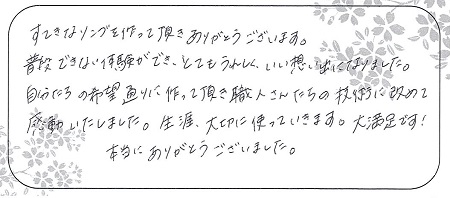 すてきなリングを作って頂きありがとうございます。
普段できない体験ができ、とてもうれしく、いい想い出になりました。
自分たちの希望通りに作って頂き職人さんたちの技術に改めて
感動いたしました。生涯、大切に使っていきます。大満足です!
本当にありがとうございました。